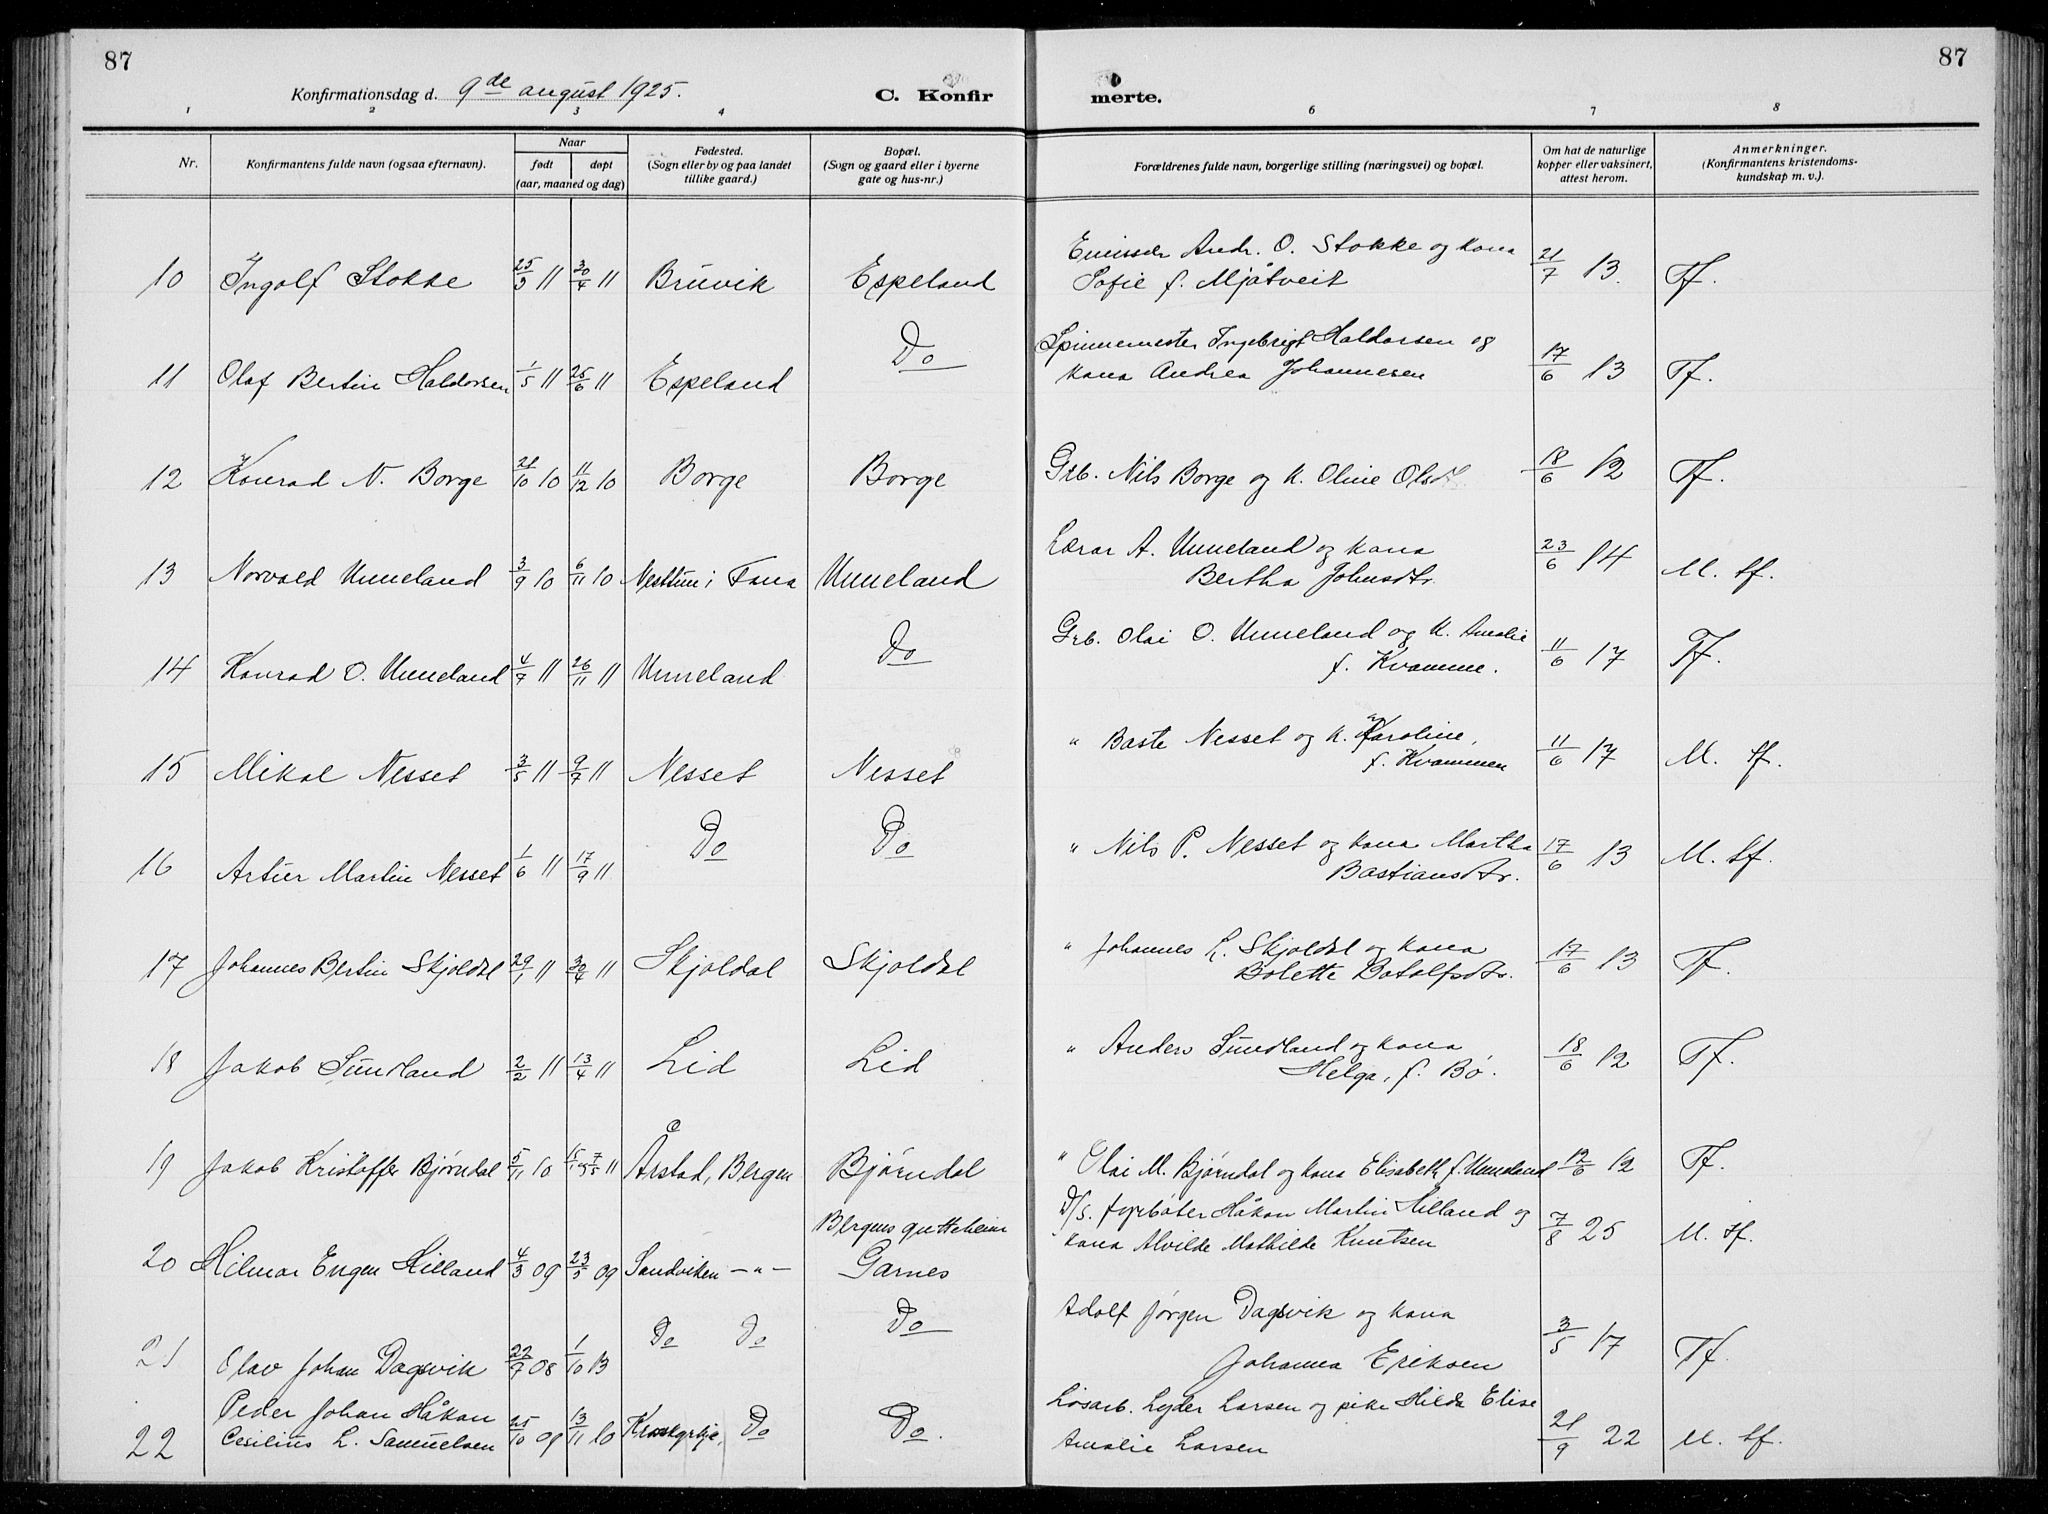 87
Konfirmationsdag d. 9de august 1925.
C. Konfir
merte.
87
1 2 3 4 6 7 8
Nr.
Konfirmantens fulde navn (ogsaa efternavn).
Naar
født døpt
(aar, maaned og dag)
Fødested.
(Sogn eller by og paa landet
tillike gaard.)
Bopæl.
(Sogn og gaard eller i byerne
gate og hus-nr.)
Forældrenes fulde navn, borgerlige stilling (næringsvei) og bopæl.
Om hat de naturlige
kopper eller vaksinert,
attest herom.
Anmerkninger.
(Konfirmantens kristendoms-
kundskap m. v.).
10 Ingolf Stokke 25/3 11 30/4 11 Bruvik Espeland
Andr. O. Stokke og kona
Sofie f. Mjåtveit
21/7 13. Tf.
11 Olaf Bertin Haldorsen 1/5 11 25/6 11 Espeland Do
Spinnemester Ingebrigt Haldorsen og
kona Andrea Johannesen
17/6 13 Tf.
12 Konrad N. Borge 21/10 10 11/12 10 Borge Borge
Grb. Nils Borge og k. Oline Olsdt
18/6 12 Tf.
13 Norvald Unneland 3/9 10 6/11 10 Nesttun i Fana Unneland
Lærar A. Unneland og kona
Bertha Johnsdtr.
23/6 14 M. tf.
14 Konrad O. Unneland 4/9 11 26/11 11 Unneland Do
Grb. Olai O. Unneland og k. Amalie
f. Kvamme.
11/6 17 Tf.
15 Mikal Nesset 3/5 11 9/7 11 Nesset Nesset
" Baste Nesset og k. Karoline,
f. Kvammen
11/6 17 M. tf.
16 Artur Martin Nesset 1/6 11 17/9 11 Do Do
" Nils P. Nesset og kona Martha
Bastiansdtr.
17/6 13 M. tf.
17 Johannes Bertin Skjoldal 29/1 11 30/4 11 Skjoldal Skjoldal
" Johannes L. Skjoldal og kona
Bolette Botolfsdtr.
17/6 13 Tf.
18 Jakob Sundland 2/2 11 13/4 11 Lid Lid
" Anders Sundland og kona
Helga, f. Bø.
18/6 12 Tf.
19 Jakob Kristoffer Bjørndal 5/11 10 7/5 11 Årstad, Bergen Bjørndal
" Olai M. Bjørndal og kona Elisabeth f. Unneland
12/6 12 Tf.
20 Hilmar Engen Hilland 4/3 09 23/5 09 Sandviken — " — Bergens gutteheim
Garnes
D/s. fyrbøter Håkon Martin Hilland og
kona Alvilde Mathilde Knutsen
7/8 25 M. tf.
21 Olav Johan Dagsvik 22/7 08 1/10 13 Do Do Do
Adolf Jørgen Dagsvik og kona
Johanna Eriksen
3/5 17 Tf.
22 Peder Johan Håkon
Cesilius L. Samuelsen 25/10 09 13/11 10 Korskyrkje, Do Do.
Løsarb. Lyder Larsen og pike Hilda Elise
Amalie Larsen
21/9 22 M. tf.